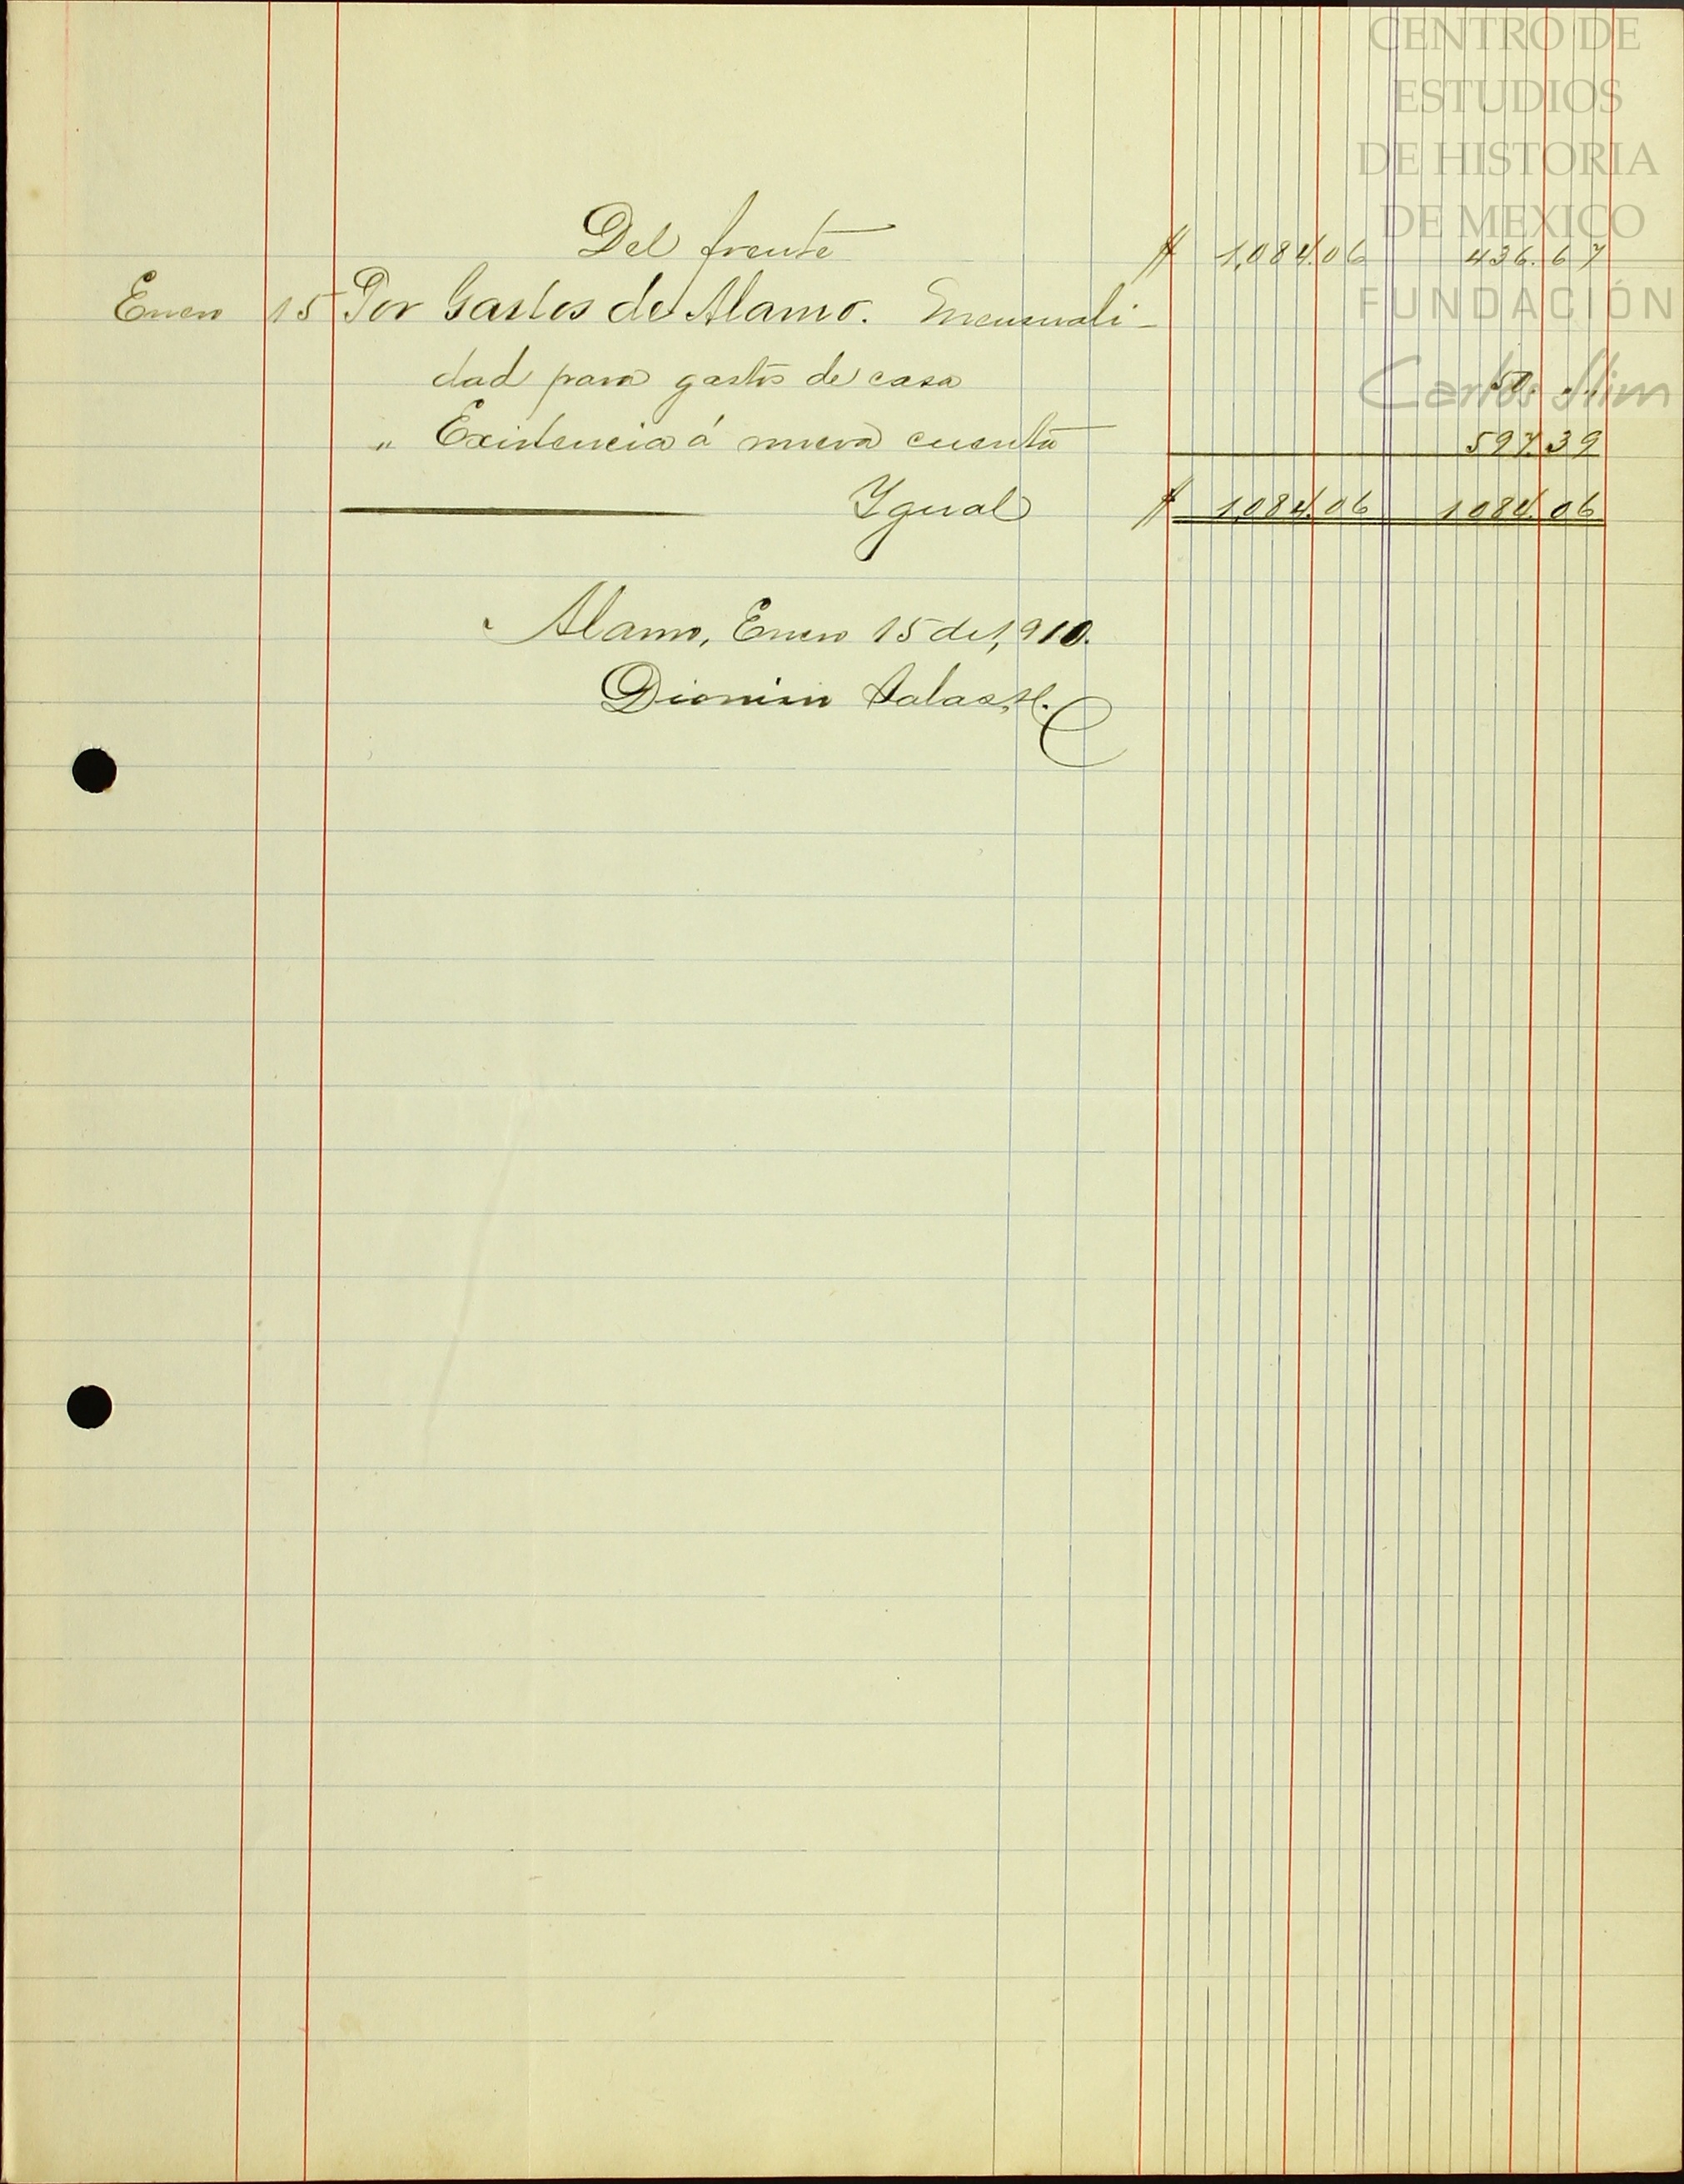 CENTRO DE
ESTUDIOS
DE HISTORIA
DE MEXICO
FUNDACIÓN
Carlos Slim
Del frente $ 1,084.06 436.67
Enero 15 Por Gastos de Alamo. Smensuali-
dad para gastos de casa 50. ..
" Existencia á nueva cuenta 597.39
Ygual $ 1,084.06 1084.06
Alamo, Enero 15 de 1,910.
Dionisio Salas, H.